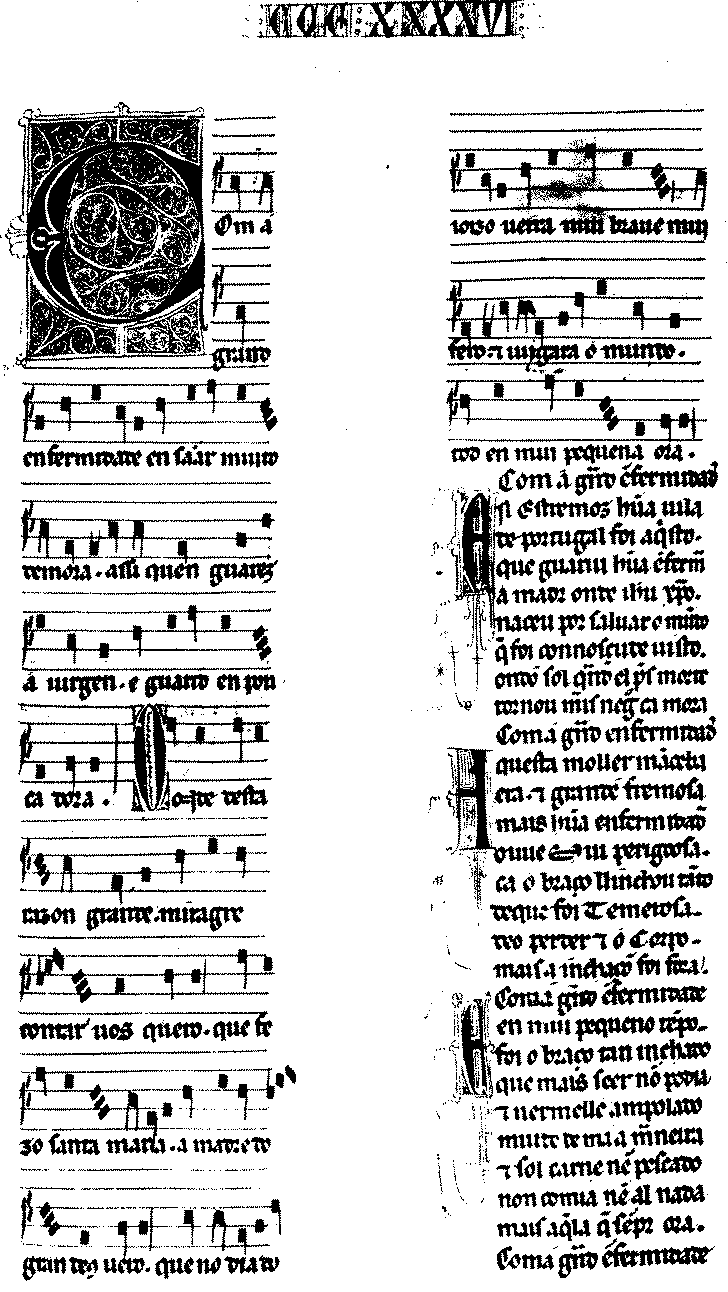 CCC XXXXVI
Com a
grand
enfermidade en sãar muito
demora · assi quen guarez
a uirgen · e guardo en pou
ca dora · Onde desta
razon grande · miragre
contar uos quero · que fe
zo santa maria · a madre do
gran deg uero · que no dia do
ioizo uerra mui braue mui
feito · ⁊ iuygara o mundo ·
tod en mui pequena ora ·
Com a g̃nd ẽfermidad
En Estremoz hũa uila
de portugal foi aq̃sto ·
que guariu hũa ẽferm
a madr onde ihũ xp̃o ·
naceu por saluar o mũdo
q̃ foi connosçudo uisto ·
tornou mĩs neg̃ ca mora
Com a g̃nd enfermidad
Aquesta moller mãcebа
era · ⁊ grande fremosa
mais hũa enfermidad
ouue mui perigoosa ·
ca o braço ll inchou tãto
deque foi Temerosa ·
deo perder ⁊ o Corpo ·
mais a inchaço foi fora ·
Com a g̃nd ẽfermidade
E en mui pequeno tẽpo
foi o braço tan inchado
que mais seer nõ podia
⁊ uermelle ampolado
muito de mala mãneira
⁊ sol carne nẽ pescado
non comia nẽ al nada
mais aq̃la q̃ sẽpr ora ·
Com a g̃nd ẽfermidade